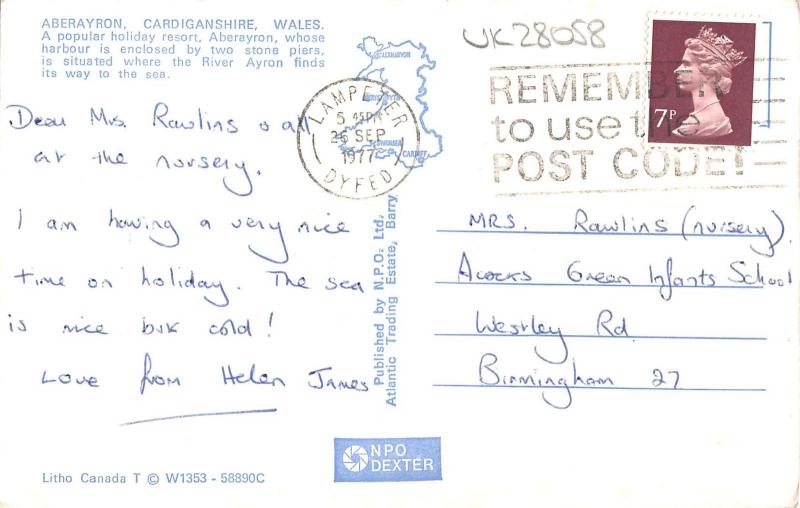 ABERAYRON, CARDIGANSHIRE, WALES.
A popular holiday resort, Aberayron, whose
harbour is enclosed by two stone piers,
is situated where the River Ayron finds
its way to the sea.
UK28058
REMEMBER
to use the
POST CODE!
7P
LAMPETER
5 45PM
26 SEP
1977
DYFED
SWANSEA
CARDIFF
Dear Mrs. Rawlins & all
at the nursery.
I am having a very nice
time on holiday. The sea
is nice but cold!
Love from Helen James
Published by N.P.O. Ltd.
Atlantic Trading Estate, Barry
MRS. Rawlins (nursery)
Acocks Green Infants School
Westley Rd
Birmingham 27
NPO
DEXTER
Litho Canada T © W1353 - 58890C